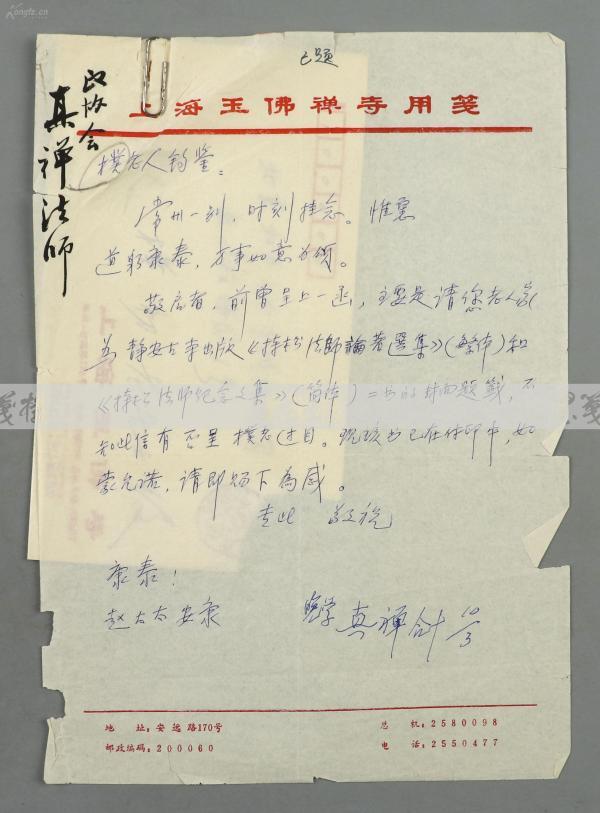 已题
政协会
真禅法师
上海玉佛禅寺用笺
樸老人钧鉴：
常州一别，时刻挂念。惟冀
道躬康泰，万事如意为颂。
敬启者，前曾呈上一函，主要是请您老人家
为静安古寺出版《持松法師論著選集》（繁体）和
《持松法师纪念文集》（简体）二书的封面题籤，不
知此信有否呈樸老过目。现该书已在付印中，如
蒙允诺，请即赐下為感。
专此 敬祝
康泰！
赵太太安康
晚学真禅合十
10/3
地　址：安远路170号
邮政编码：200060
总　机：2580098
电　话：2550477